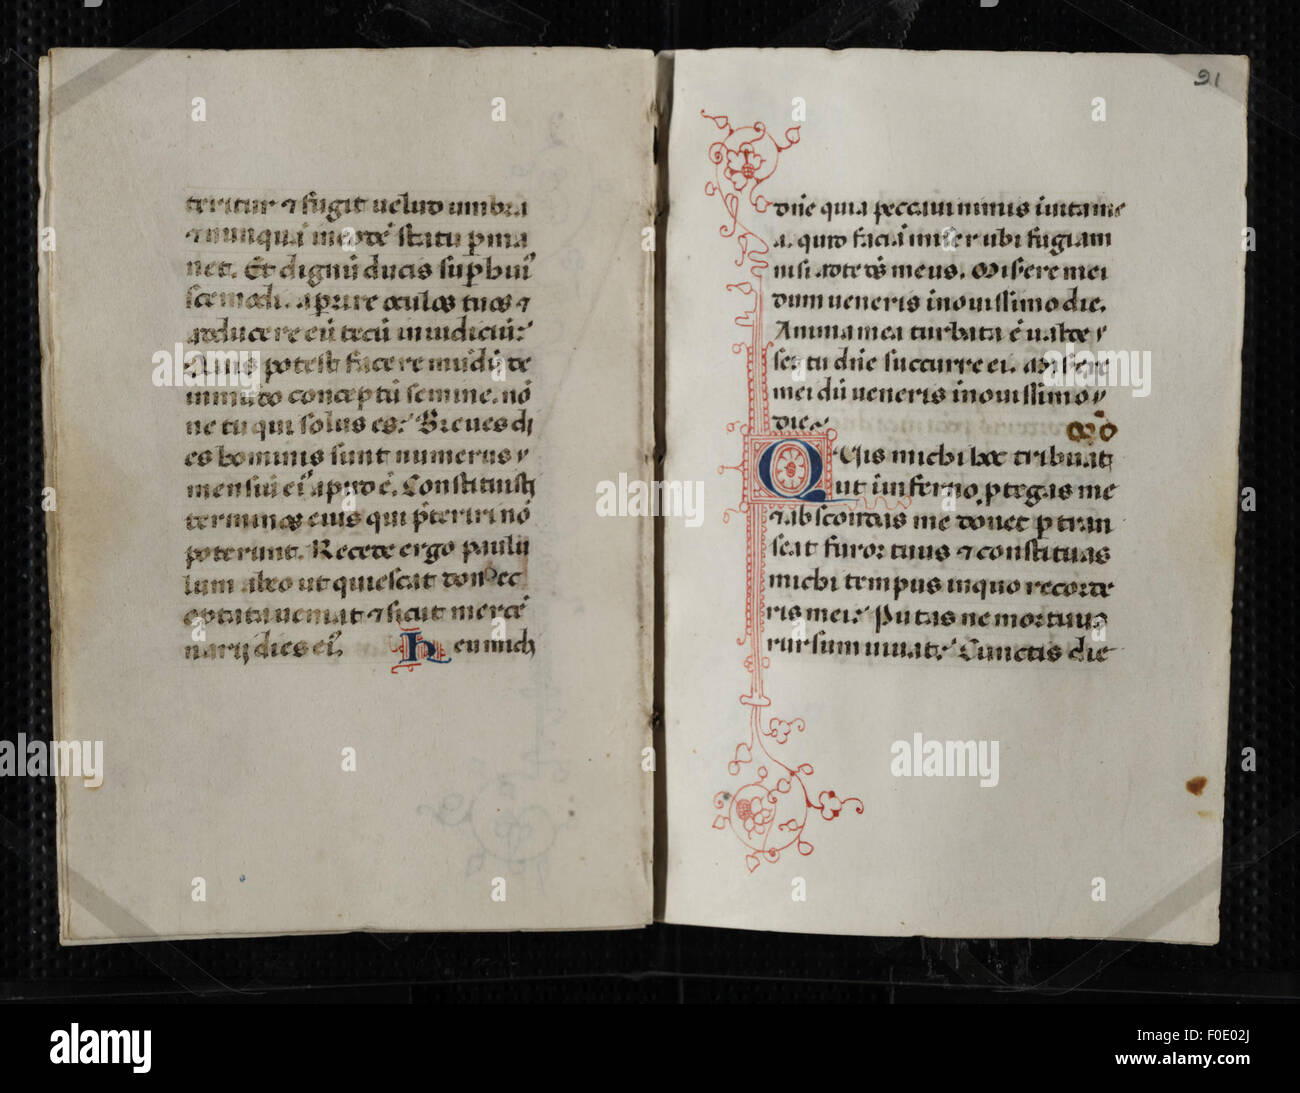 teritur ⁊ fugit uelud umbra
⁊ nunquā ineodē statu ꝑma
net. Et dignū ducis suꝑ hui⁹
scemodi. aꝑire oculos tuos ⁊
adducere eū tecū iniudiciū:
Quis potest facere mūdū de
inmūdo conceptū semine. nō
ne tu qui solus es: Breues di
es hominis sunt numerus
mensiū ei⁹ apud ē. Constituisti
terminos eius qui p̄teriri nō
poterunt. Recede ergo paulu
lum abeo ut quiescat donec
optata ueniat ⁊ sicut mercē
narij dies ei⁹.
heu mich
91
dn̄e quia peccaui nimis īuita me
a. quid faciā miser ubi fugiam
nisi adte ds̄ meus. Miseremei
dum ueneris inouissimo die.
Anima mea turbata ē ualde
sed tu dn̄e succurre ei. Misere
mei dū ueneris inouissimo
die.
QUis michi hoc tribuat
ut īinferno ꝓtegas me
⁊ abscondas me donec ꝑtran
seat furor tuus ⁊ constituas
michi tempus inquo recorde
ris mei: Putas ne mortuus
rursum uiuat: Cunctis die
alamy
a
alamy stock photo
F0E02J
www.alamy.com